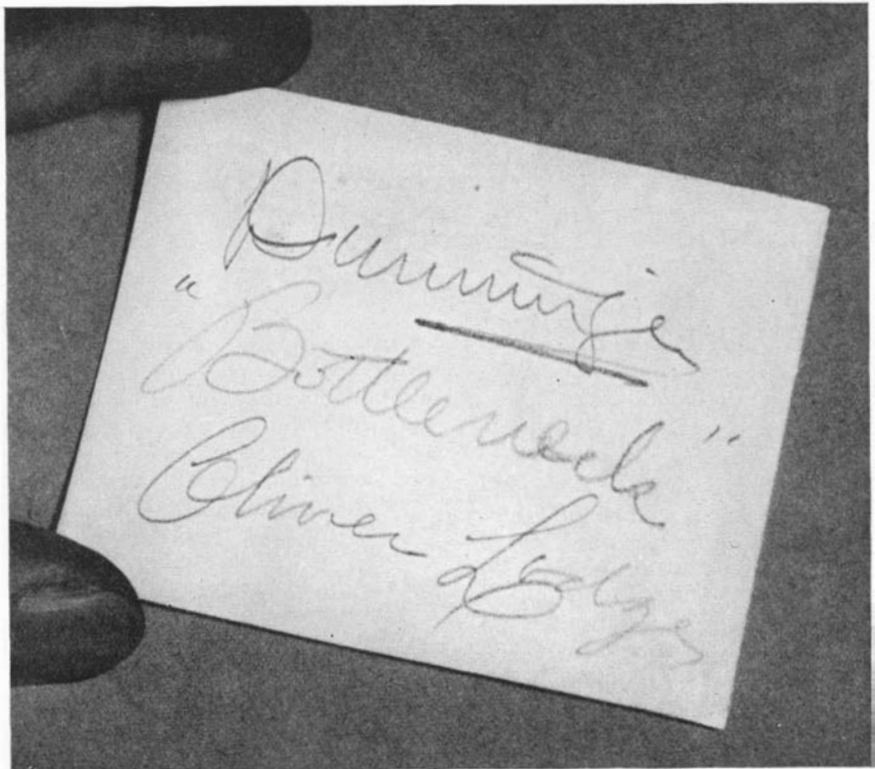 Dunninger
"Bottleneck"
Oliver Lodge